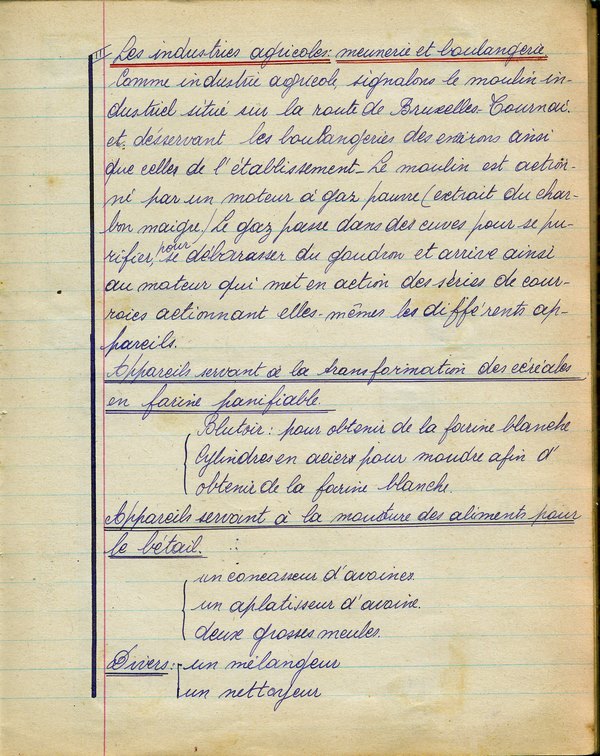 Les industries agricoles: meunerie et boulangerie
Comme industrie agricole, signalons le moulin in-
dustriel situé sur la route de Bruxelles-Tournai.
et désservant les boulangeries des environs ainsi
que celles de l'établissement. Le moulin est action-
né par un moteur à gaz pauvre (extrait du char-
bon maigre) Le gaz passe dans des cuves pour se pu-
rifier, pour se débarasser du goudron et arrive ainsi
au moteur qui met en action des séries de cour-
roies actionnant elles-mêmes les différents ap-
pareils.
Appareils servant à la transformation des céréales
en farine panifiable.
Blutoir: pour obtenir de la farine blanche
Cylindres en aciers pour moudre afin d'
obtenir de la farine blanche.
Appareils servant à la mouture des aliments pour
le bétail.
un concasseur d'avoines.
un aplatisseur d'avoine.
deux grosses meules.
Divers: un mélangeur
un nettoyeur